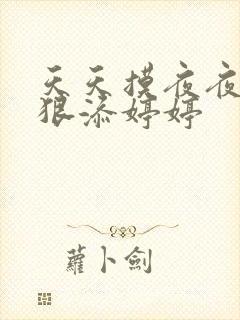 天天摸夜夜
狠添婷婷
蘿卜劍